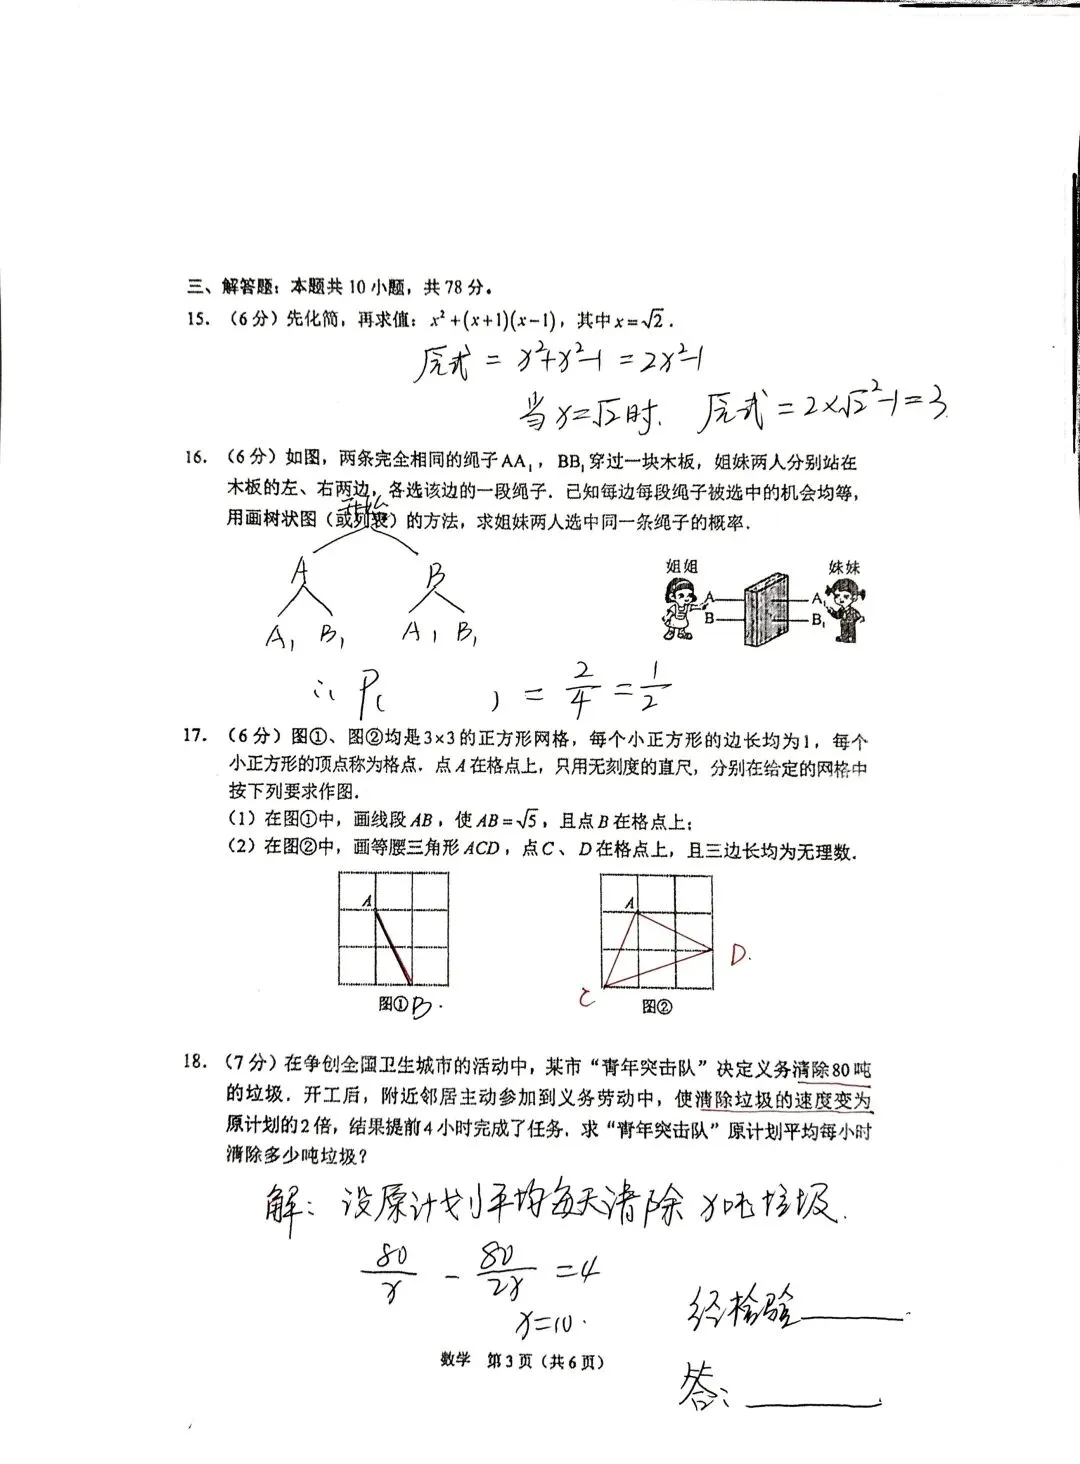 三、解答题：本题共 10 小题，共 78 分。
15. （6 分）先化简，再求值：x²+(x+1)(x-1)，其中x=√2．
原式 = x²+x²-1 = 2x²-1
当 x=√2时. 原式 = 2×√2²-1=3
16. （6 分）如图，两条完全相同的绳子AA₁，BB₁穿过一块木板，姐妹两人分别站在
木板的左、右两边，各选该边的一段绳子．已知每边每段绳子被选中的机会均等，
开始
用画树状图（或列表）的方法，求姐妹两人选中同一条绳子的概率．
A B
A₁ B₁ A₁ B₁
姐姐 妹妹
A A₁
B B₁
∴ P( ) = 2/4 = 1/2
17. （6 分）图①、图②均是3×3的正方形网格，每个小正方形的边长均为1，每个
小正方形的顶点称为格点．点A在格点上，只用无刻度的直尺，分别在给定的网格中
按下列要求作图．
（1）在图①中，画线段AB，使AB=√5，且点B在格点上；
（2）在图②中，画等腰三角形ACD，点C、D在格点上，且三边长均为无理数．
A A
D.
C
图① B. 图②
18. （7 分）在争创全国卫生城市的活动中，某市“青年突击队”决定义务清除80吨
的垃圾．开工后，附近邻居主动参加到义务劳动中，使清除垃圾的速度变为
原计划的2倍，结果提前4小时完成了任务．求“青年突击队”原计划平均每小时
清除多少吨垃圾？
解：设原计划平均每天清除 x吨垃圾.
80/x - 80/2x = 4
x=10.
经检验
数学 第3页（共6页）
答：